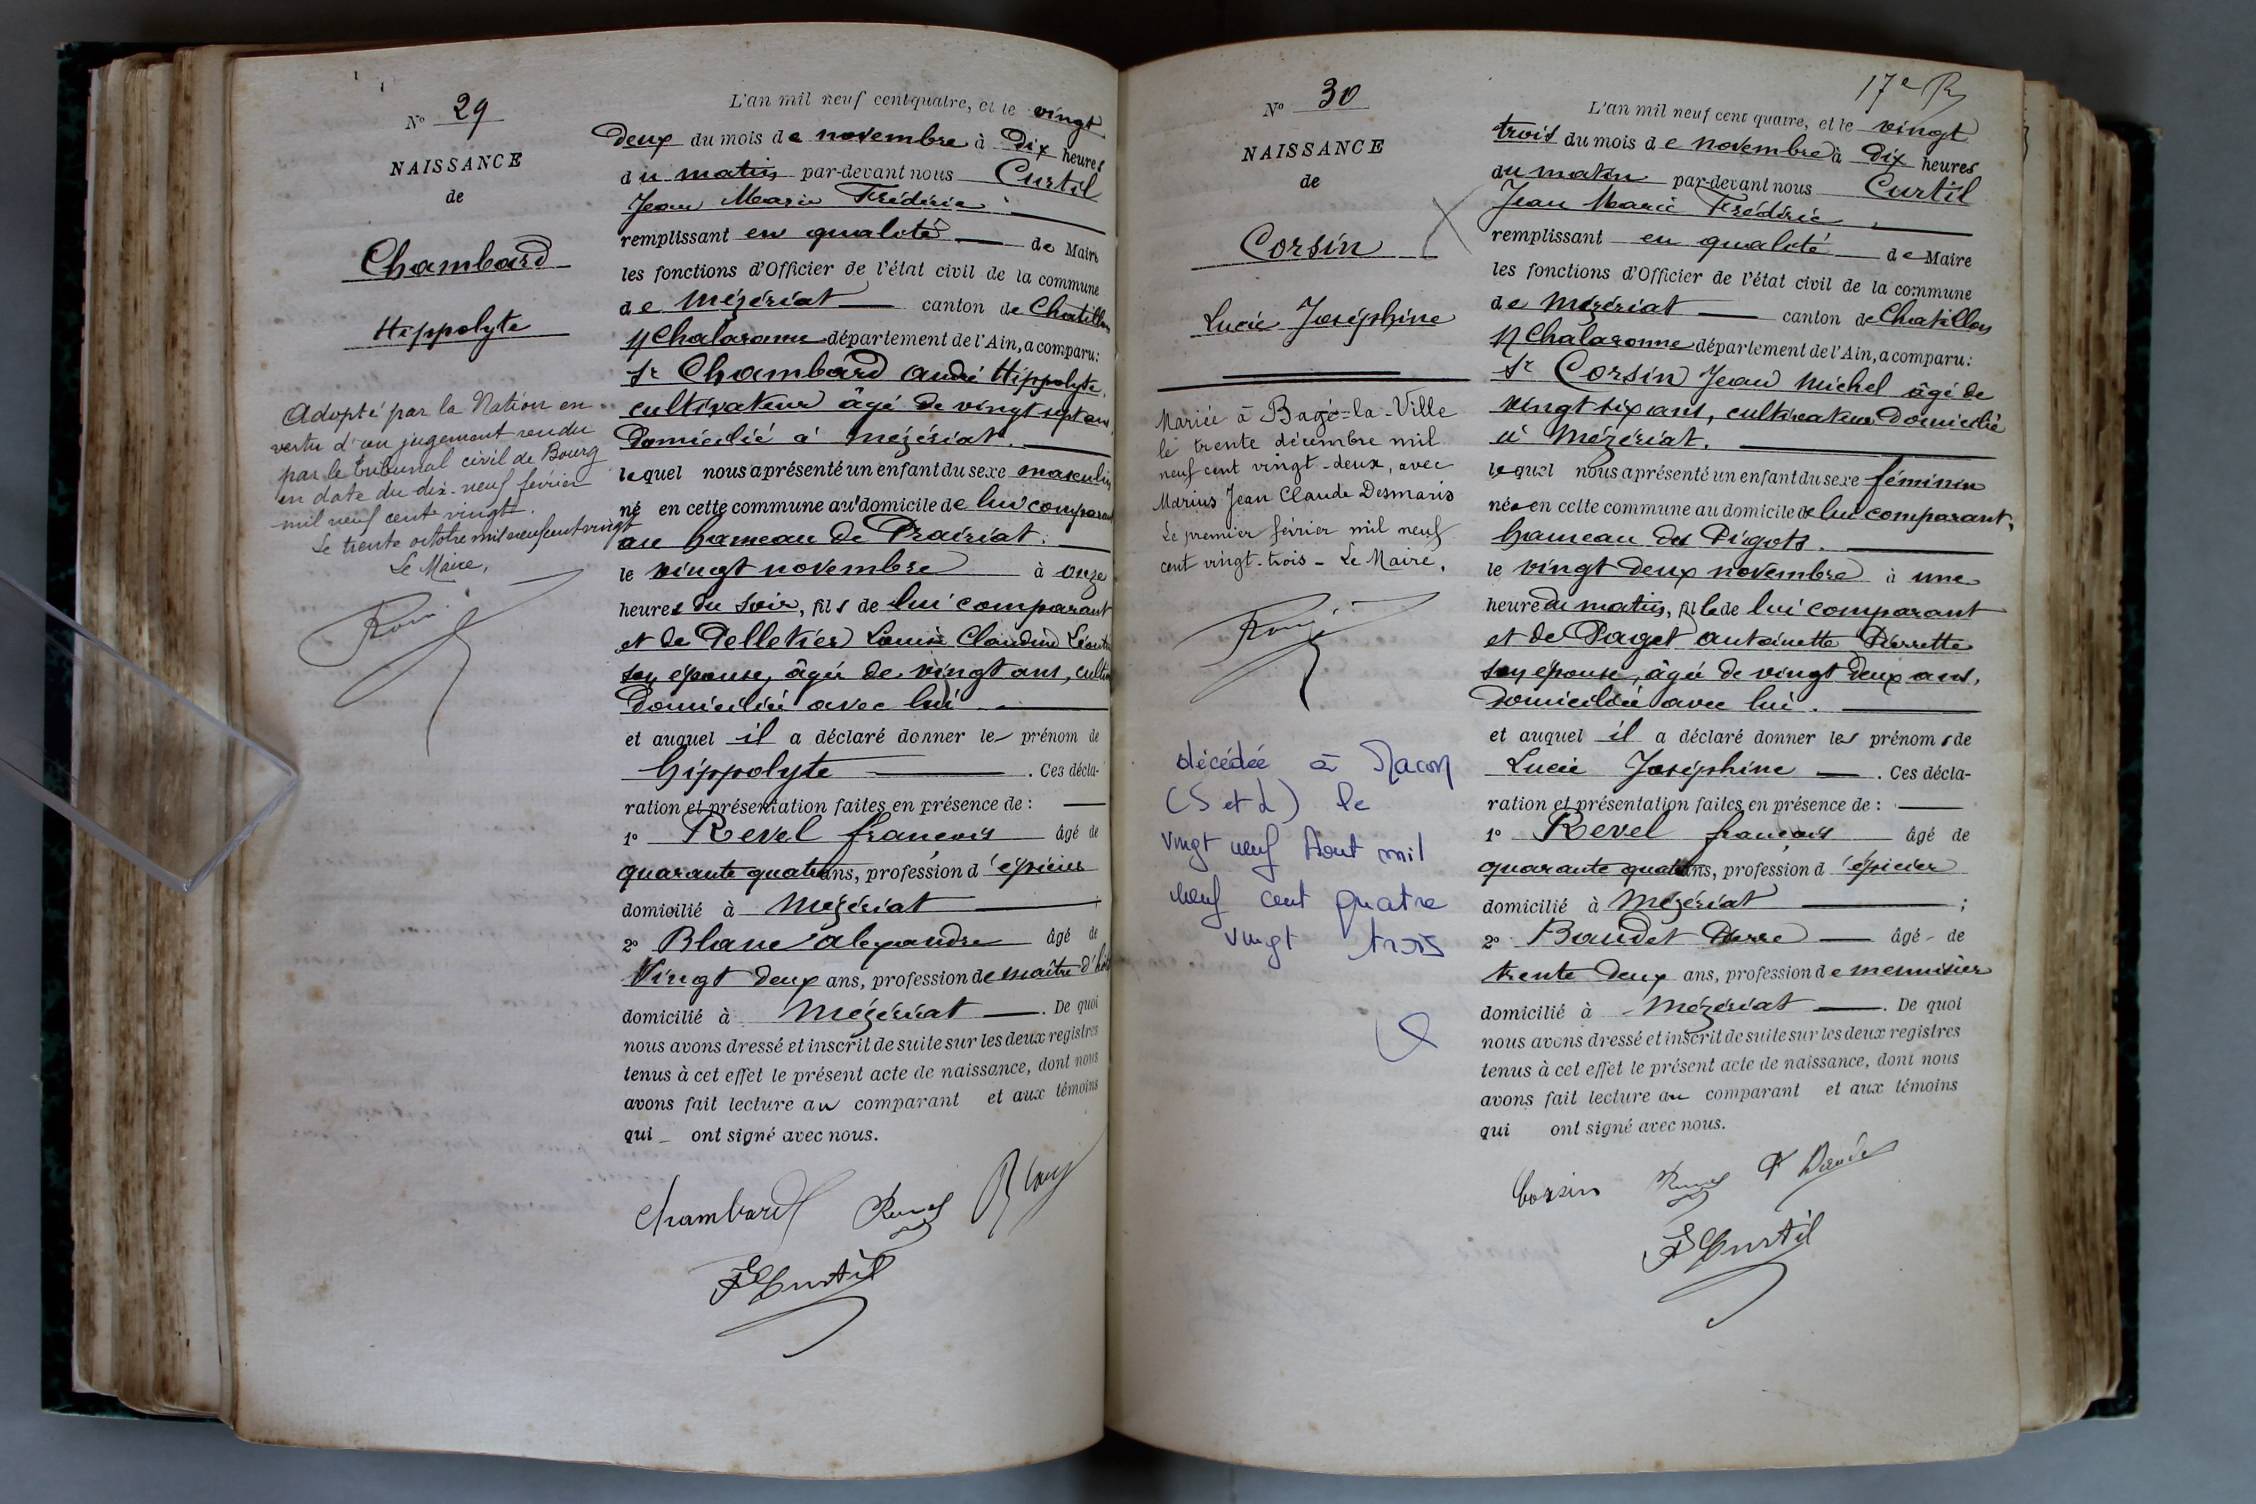 N° 29
NAISSANCE
de
Chambard
Hippolyte
Adopté par la Nation en
vertu d'un jugement rendu
par le tribunal civil de Bourg
en date du dix-neuf février
mil neuf cent vingt.
Le trente octobre mil neuf cent vingt
Le Maire,
L'an mil neuf cent quatre, et le vingt
deux du mois de novembre à Dix heures
du matin par-devant nous Curtil
Jean Marie Frédéric
remplissant en qualité de Maire
les fonctions d'Officier de l'état civil de la commune
de Mézériat canton de Chatillon
s/ Chalaronne département de l'Ain, a comparu:
Sr Chambard André Hippolyte,
cultivateur âgé de vingt sept ans,
Domicilié à Mézériat.
lequel nous a présenté un enfant du sexe masculin
né en cette commune au domicile de lui comparant
au hameau de Prairiat.
le vingt novembre à onze
heures du soir, fils de lui comparant
et de Pelletier Louise Claudine
son épouse, âgée de vingt ans,
Domiciliée avec lui.
et auquel il a déclaré donner le prénom de
Hippolyte . Ces décla-
ration et présentation faites en présence de :
1° Revel françois âgé de
quarante quatre ans, profession d'épicier
domicilié à Mézériat
2° Blanc alexandre âgé de
Vingt deux ans, profession de maître d'
domicilié à Mézériat . De quoi
nous avons dressé et inscrit de suite sur les deux registres
tenus à cet effet le présent acte de naissance, dont nous
avons fait lecture au comparant et aux témoins
qui ont signé avec nous.
Chambard Revel Blanc
F Curtil
17e R
N° 30
NAISSANCE
de
Corsin
Lucie Joséphine
Mariée à Bagé-la-Ville
le trente décembre mil
neuf cent vingt-deux, avec
Marius Jean Claude Desmaris
Le premier février mil neuf
cent vingt-trois - Le Maire,
décédée à Macon
(S et L) le
vingt neuf Aout mil
neuf cent quatre
vingt trois
L'an mil neuf cent quatre, et le vingt
trois du mois de novembre à Dix heures
du matin par-devant nous Curtil
Jean Marie Frédéric
remplissant en qualité de Maire
les fonctions d'Officier de l'état civil de la commune
de Mézériat canton de Chatillon
s/ Chalaronne département de l'Ain, a comparu:
Sr Corsin Jean Michel âgé de
vingt six ans, cultivateur Domicilié
à Mézériat.
lequel nous a présenté un enfant du sexe féminin
née en cette commune au domicile de lui comparant,
hameau des Pigots.
le vingt deux novembre à une
heure du matin, fille de lui comparant
et de Paget antoinette Pierrette
son épouse, âgée de vingt deux ans,
Domiciliée avec lui.
et auquel il a déclaré donner les prénoms de
Lucie Joséphine . Ces décla-
ration et présentation faites en présence de :
1° Revel françois âgé de
quarante quatre ans, profession d'épicier
domicilié à Mézériat ;
2° Baudet Pierre âgé de
trente deux ans, profession de menuisier
domicilié à Mézériat . De quoi
nous avons dressé et inscrit de suite sur les deux registres
tenus à cet effet le présent acte de naissance, dont nous
avons fait lecture au comparant et aux témoins
qui ont signé avec nous.
Corsin Revel P Baudet
F Curtil